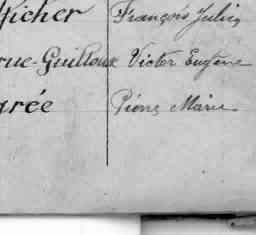 fficher François Julien
rue-Guilloux Victor Eugène
grée Pierre Marie